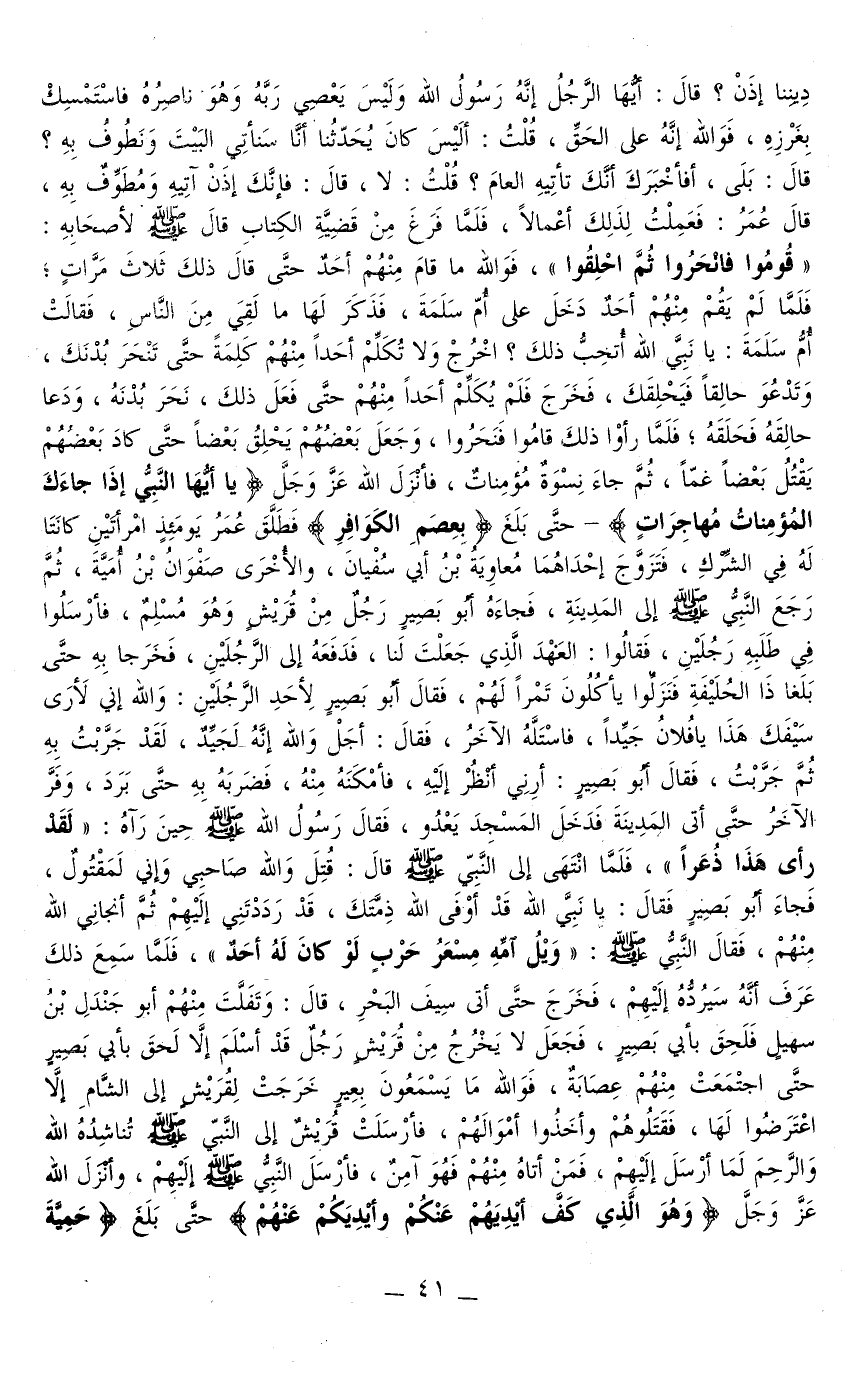 دِيننا إذَنْ ؟ قالَ : أيُّهَا الرَّجُلُ إنَّهُ رَسُولُ الله وَلَيْسَ يَعْصِي رَبَّهُ وَهُوَ ناصِرُهُ فاسْتَمْسِكْ
بِغَرْزِهِ ، فَوَالله إنَّهُ على الحَقِّ ، قُلْتُ : ألَيْسَ كانَ يُحَدّثُنا أنَّا سَنأتي البَيْتَ وَنَطُوفُ بِهِ ؟
قالَ : بَلَى ، أفأخْبَرَكَ أنَّكَ تأتِيهِ العامَ ؟ قُلْتُ : لا ، قالَ : فإنَّكَ إذَنْ آتِيهِ وَمُطَوِّفٌ بِهِ ،
قالَ عُمَرُ : فَعَمِلْتُ لِذَلِكَ أعْمالاً ، فَلَمَّا فَرَغَ مِنْ قَضِيَّةِ الكِتابِ قالَ ﷺ لأصحَابِهِ :
« قُومُوا فانْحَرُوا ثُمَّ احْلِقُوا » ، فَوَالله ما قامَ مِنْهُمْ أحَدٌ حتَّى قال ذلكَ ثَلاثَ مَرَّاتٍ ؛
فَلَمَّا لَمْ يَقُمْ مِنْهُمْ أحَدٌ دَخَلَ على أُمّ سَلَمَةَ ، فَذَكَرَ لَهَا ما لَقِيَ مِنَ النَّاسِ ، فَقالَتْ
أُمُّ سَلَمَةَ : يا نَبِيَّ الله أتُحِبُّ ذلكَ ؟ اخْرُجْ وَلا تُكَلِّمْ أحَداً مِنْهُمْ كَلِمَةً حتَّى تَنْحَرَ بُدْنَكَ ،
وَتَدْعُوَ حالِقاً فَيَحْلِقَكَ ، فَخَرَجَ فَلَمْ يُكَلِّمْ أحَداً مِنْهُمْ حتَّى فَعَلَ ذلكَ ، نَحَرَ بُدْنَهُ ، وَدَعا
حالِقَهُ فَحَلَقَهُ ؛ فَلَمَّا رأوْا ذلكَ قامُوا فَنَحَرُوا ، وَجَعَلَ بَعْضُهُمْ يَحْلِقُ بَعْضاً حتَّى كادَ بَعْضُهُمْ
يَقْتُلُ بَعْضاً غمّاً ، ثُمَّ جاءَ نِسْوَةٌ مُؤمِناتٌ ، فأنْزَلَ الله عَزَّ وَجَلَّ ﴿ يا أيُّهَا النَّبِيُّ إذَا جاءَكَ
المُؤمِناتُ مُهاجِرَاتٍ ﴾ – حتَّى بَلَغَ ﴿ بِعِصَمِ الكَوَافِرِ ﴾ فَطَلَّقَ عُمَرُ يَومَئِذٍ امْرأتَيْنِ كانَتَا
لَهُ فِي الشِّرْكِ ، فَتَزَوَّجَ إحْدَاهُمَا مُعاوِيَةُ بْنُ أبي سُفْيانَ ، والأُخْرَى صَفْوَانُ بْنُ أُمَيَّةَ ، ثُمَّ
رَجَعَ النَّبِيُّ ﷺ إلى المَدِينَةِ ، فَجاءَهُ أبُو بَصِيرٍ رَجُلٌ مِنْ قُرَيْشٍ وَهُوَ مُسْلِمٌ ، فأرْسَلُوا
فِي طَلَبِهِ رَجُلَيْنِ ، فَقالُوا : العَهْدَ الَّذِي جَعَلْتَ لَنا ، فَدَفَعَهُ إلى الرَّجُلَيْنِ ، فَخَرَجا بِهِ حتَّى
بَلَغا ذَا الحُلَيْفَةِ فَنَزَلُوا يأكُلُونَ تَمْراً لَهُمْ ، فَقالَ أبُو بَصِيرٍ لِأحَدِ الرَّجُلَيْنِ : وَالله إني لَأرَى
سَيْفَكَ هَذَا يافُلانُ جَيِّداً ، فاسْتَلَّهُ الآخَرُ ، فَقالَ : أجَلْ وَالله إنَّهُ لَجَيِّدٌ ، لَقَدْ جَرَّبْتُ بِهِ
ثُمَّ جَرَّبْتُ ، فَقالَ أبُو بَصِيرٍ : أرِني أنْظُرْ إلَيْهِ ، فأمْكَنَهُ مِنْهُ ، فَضَرَبَهُ بِهِ حتَّى بَرَدَ ، وَفَرَّ
الآخَرُ حتَّى أتى المَدِينَةَ فَدَخَلَ المَسْجِدَ يَعْدُو ، فَقالَ رَسُولُ الله ﷺ حِينَ رَآهُ : « لَقَدْ
رأى هَذَا ذُعَراً » ، فَلَمَّا انْتَهَى إلى النَّبِيّ ﷺ قالَ : قُتِلَ وَالله صَاحِبي وَإني لَمَقْتُولٌ ،
فَجاءَ أبُو بَصِيرٍ فَقالَ : يا نَبِيَّ الله قَدْ أوْفَى الله ذِمَّتَكَ ، قَدْ رَدَدْتَنِي إلَيْهِمْ ثُمَّ أنجاني الله
مِنْهُمْ ، فَقالَ النَّبِيُّ ﷺ : « وَيْلُ امِّهِ مِسْعَرُ حَرْبٍ لَوْ كانَ لَهُ أحَدٌ » ، فَلَمَّا سَمِعَ ذلكَ
عَرَفَ أنَّهُ سَيَرُدُّهُ إلَيْهِمْ ، فَخَرَجَ حتَّى أتى سِيفَ البَحْرِ ، قالَ : وَتَفَلَّتَ مِنْهُمْ أبو جَنْدَلِ بْنُ
سهيلٍ فَلَحِقَ بأبي بَصِيرٍ ، فَجَعَلَ لا يَخْرُجُ مِنْ قُرَيْشٍ رَجُلٌ قَدْ أسْلَمَ إلَّا لَحِقَ بأبي بَصِيرٍ
حتَّى اجتَمَعَتْ مِنْهُمْ عِصَابَةٌ ، فَوَالله مَا يَسْمَعُونَ بِعِيرٍ خَرَجَتْ لِقُرَيْشٍ إلى الشَّامِ إلَّا
اعْتَرَضُوا لَهَا ، فَقَتَلُوهُمْ وأخَذُوا أمْوَالَهُمْ ، فأرْسَلَتْ قُرَيْشٌ إلى النَّبِيّ ﷺ تُناشِدُهُ الله
وَالرَّحِمَ لَمَا أرْسَلَ إلَيْهِمْ ، فَمَنْ أتاهُ مِنْهُمْ فَهُوَ آمِنٌ ، فأرْسَلَ النَّبِيُّ ﷺ إلَيْهِمْ ، وأنْزَلَ الله
عَزَّ وَجَلَّ ﴿ وَهُوَ الَّذِي كَفَّ أيْدِيَهُمْ عَنْكُمْ وأيْدِيَكُمْ عَنْهُمْ ﴾ حتَّى بَلَغَ ﴿ حَمِيَّةَ
– ٤١ –